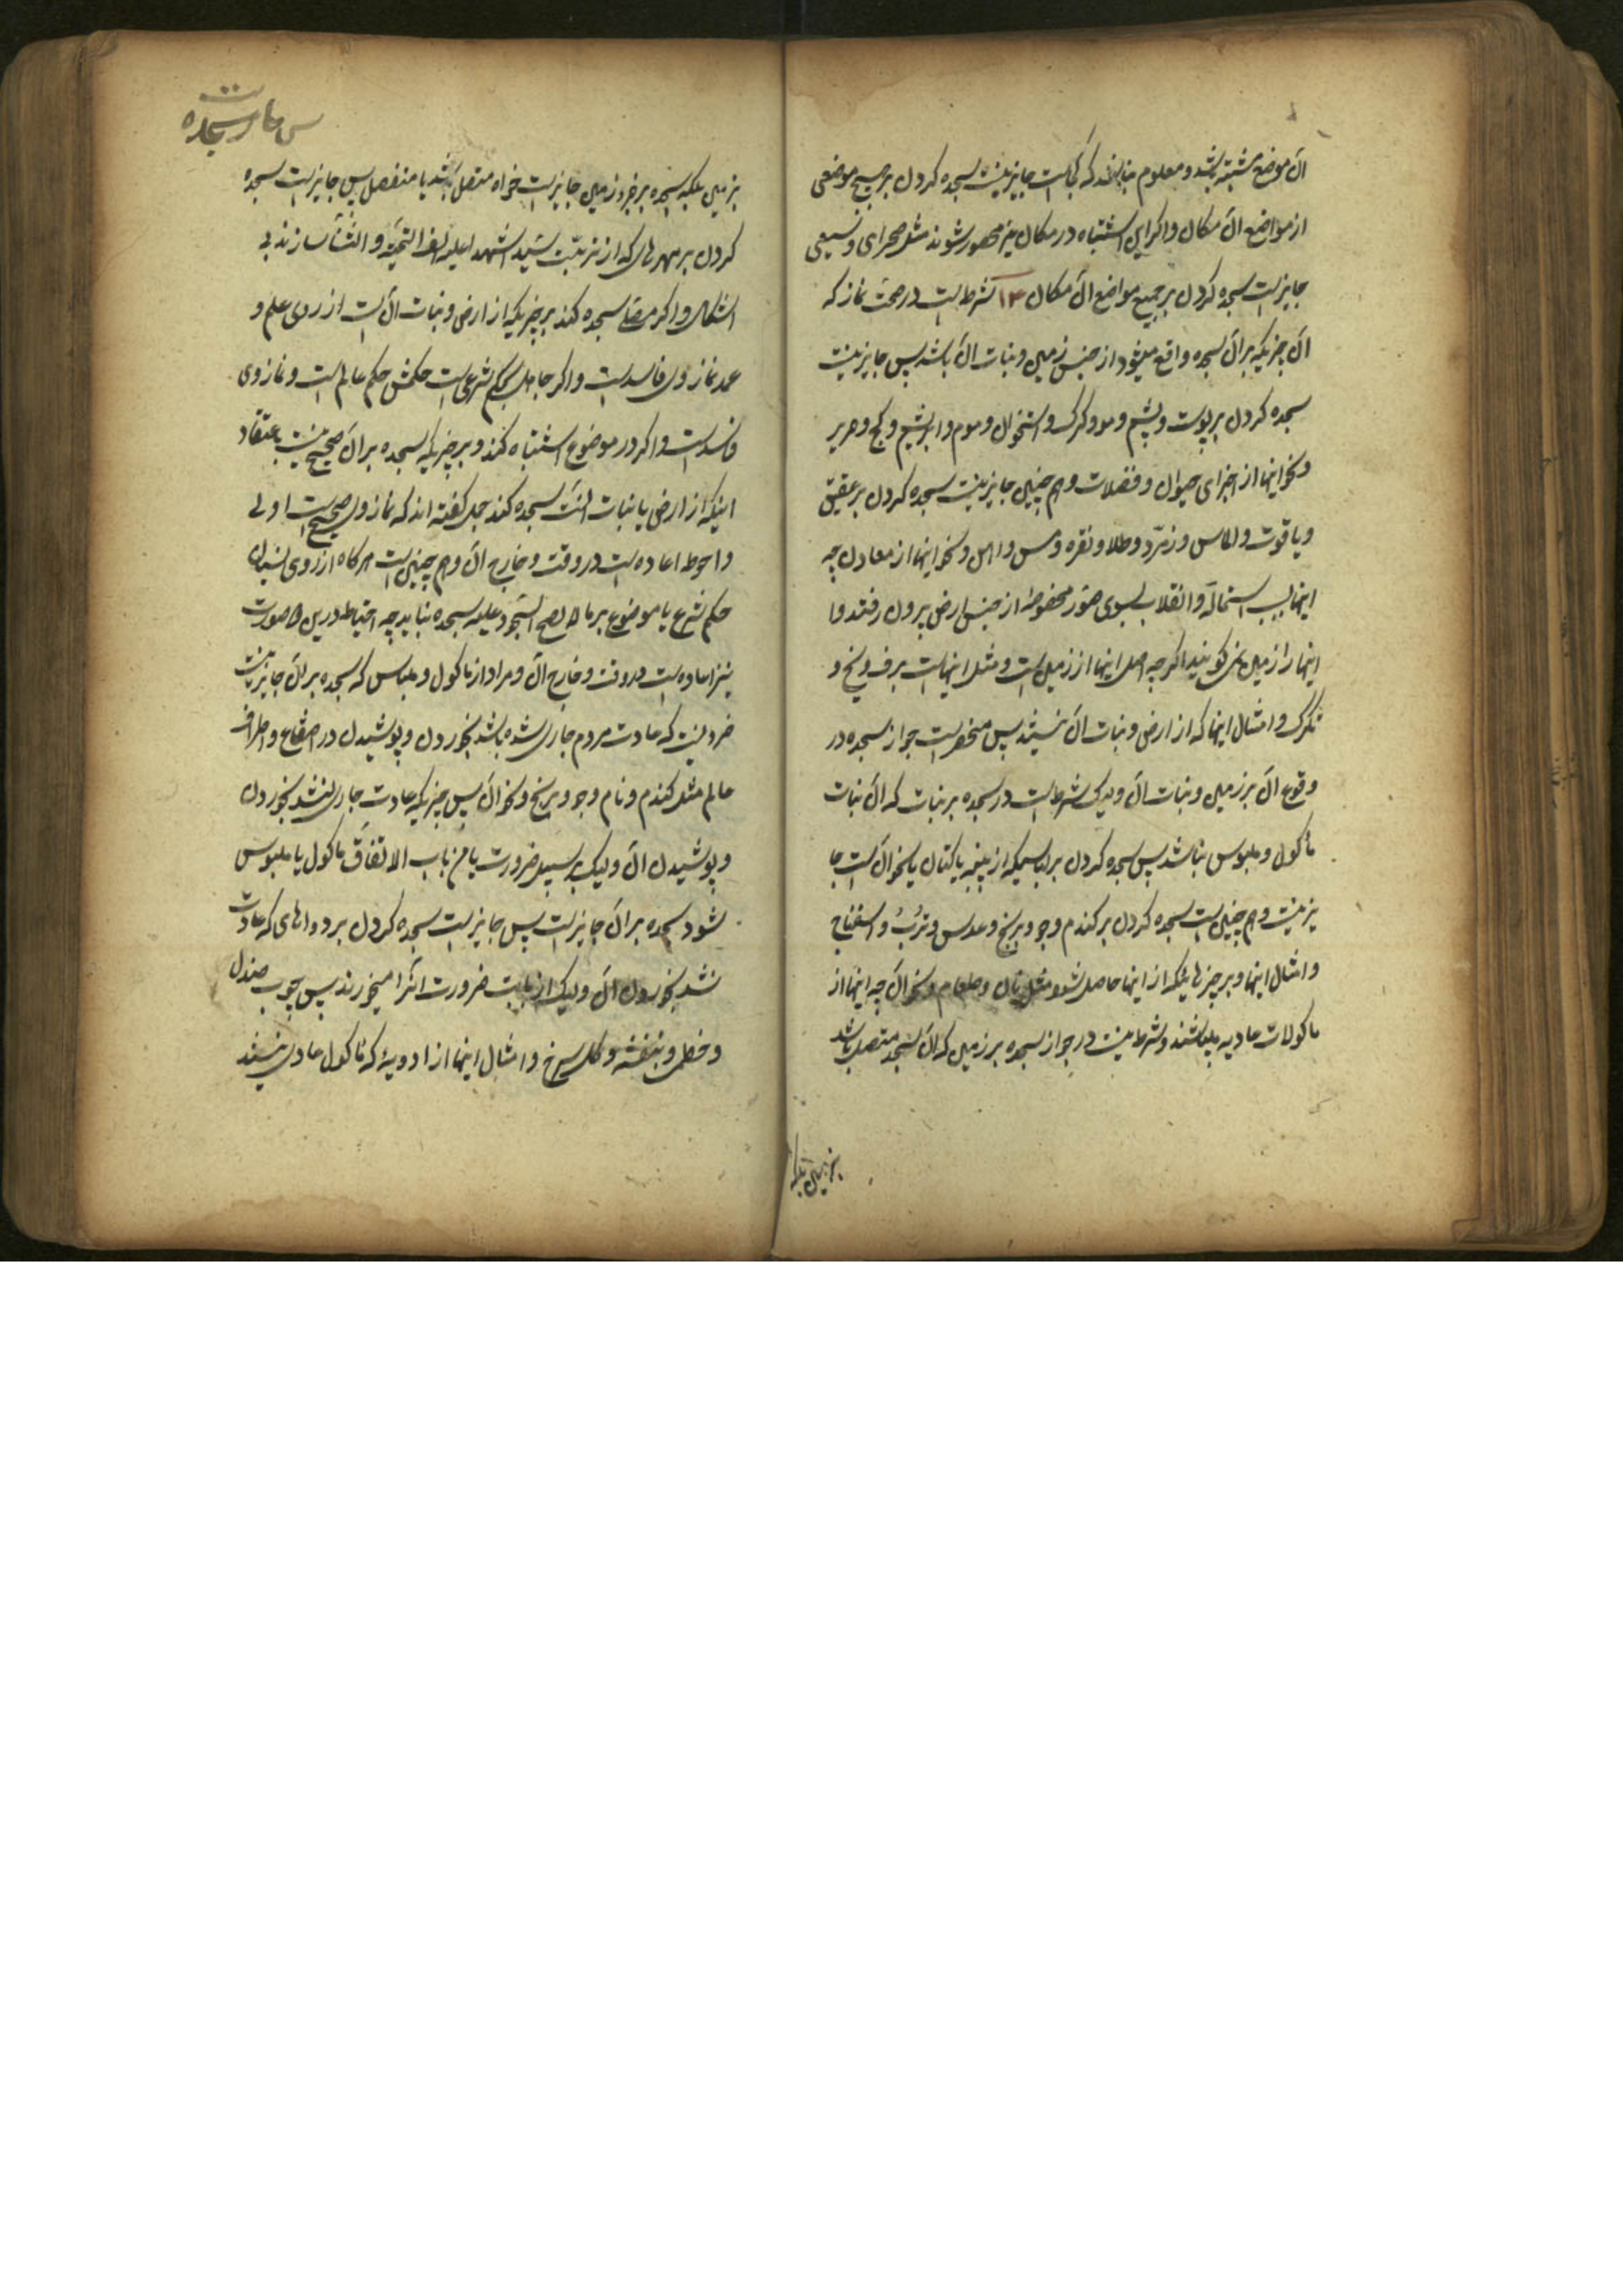 آن موضع مشتبه باشد و معلوم نباشد که کجاست جایز نیست سجده کردن بر هیچ موضعی
از مواضع آن مکان و اگر این اشتباه در مکان غیر محصور شوند مثل صحرای وسیعی
جایز است سجده کردن بر جمیع مواضع آن مکان ۱۳ شرط است در صحت نماز که
آن چیزیکه بر آن سجده واقع میشود از جنس زمین و نبات آن باشد پس جایز نیست
سجده کردن بر پوست و پشم و مو و کرک و استخوان و موم و ابریشم و کج و حریر
و نحو اینها از اجزای حیوان و فضلات و هم چنین جایز نیست سجده کردن بر عقیق
و یاقوت و الماس و زمرّد و طلا و نقره و مس و آهن و نحو اینها از معادن چه
اینها بسبب استحاله و انقلاب بسوی صور مخصوصه از جنس ارض بیرون رفتند و
اینها را زمین نمی کویند اکرچه اصل اینها از زمین است و مثل اینهاست برف و یخ و
تکرک و امثال اینها که از ارض و نبات آن نیستند پس منحصر است جواز سجده در
وقوع آن بر زمین و نبات آن ولیک شرط است در سجده بر نبات که آن نبات
مأکول و ملبوس نباشد پس سجده کردن بر لباسیکه از پنبه یا کتان یا نحو آن است جا
یز نیست و هم چنین است سجده کردن بر کندم و جو و برنج و عدس و تُرُبْ و اسفناج
و امثال اینها و بر چیزهائیکه از اینها حاصل شود مثل نان و طعام و نحو آن چه اینها از
ماکولات عادیه میباشند و شرط نیست در جواز سجده بر زمین که آن مسجد متصل باشد
بزمین بلکه
س عا در سجده
بزمین بلکه سجده بر جزو زمین جایز است خواه متصل باشد یا منفصل پس جایز است سجده
کردن بر مهرهای که از تربت سیّد الشهدا علیه الف التحیّة و الثنآ سازند بی
اشکال و اکر مصلّی سجده کند بر چیزیکه از ارض و نبات آن نیست از روی علم و
عمد نماز وی فاسد است و اکر جاهل بحکم شرعی است حکمش حکم عالم است و نماز وی
فاسد است و اکر در موضوع اشتباه کند و بر چیزیکه سجده بر آن صحیح نیست باعتقاد
اینکه از ارض یا نبات آنست سجده کند جمعی کفته اند که نماز وی صحیح است اولی
و احوط اعاده است در وقت و خارج آن و هم چنین است هرکاه از روی نسیان
حکم شرع یا موضوع بر ما لا یصح السجود علیه سجده نماید چه احتیاط درین صورت
نیز اعاده است در وقت و خارج آن و مراد از ماکول و ملبوس که سجده بر آن جایز نیست
فردیست که عادت مردم جاری شده باشد بخوردن و پوشیدن در اصقاع و اطراف
عالم مثل کندم و نام و جو و برنج و نحو آن پس چیزیکه عادت جاری نشد بخوردن
و پوشیدن آن ولیک بر سبیل ضرورت یا من باب الاتفاق ماکول یا ملبوس
شود سجده بر آن جایز است پس جایز است سجده کردن بر دواهای که عادت
نشد بخوردن آن ولیک از بابت ضرورت آنرا میخورند پس چوب صندل
و خطمی و بنفشه و کل سرخ و امثال اینها از ادویه که ماکول عادی نیستند